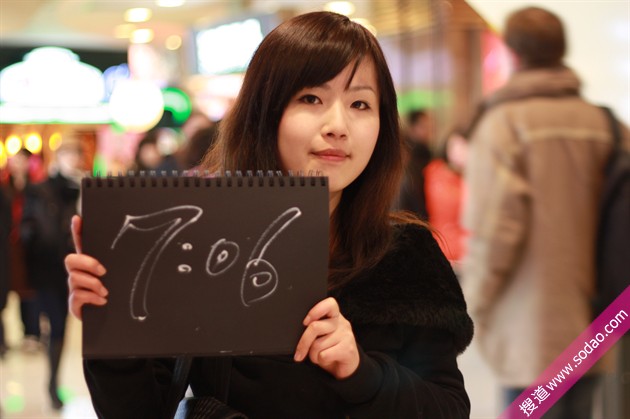 7:06
搜道 www.sodao.com